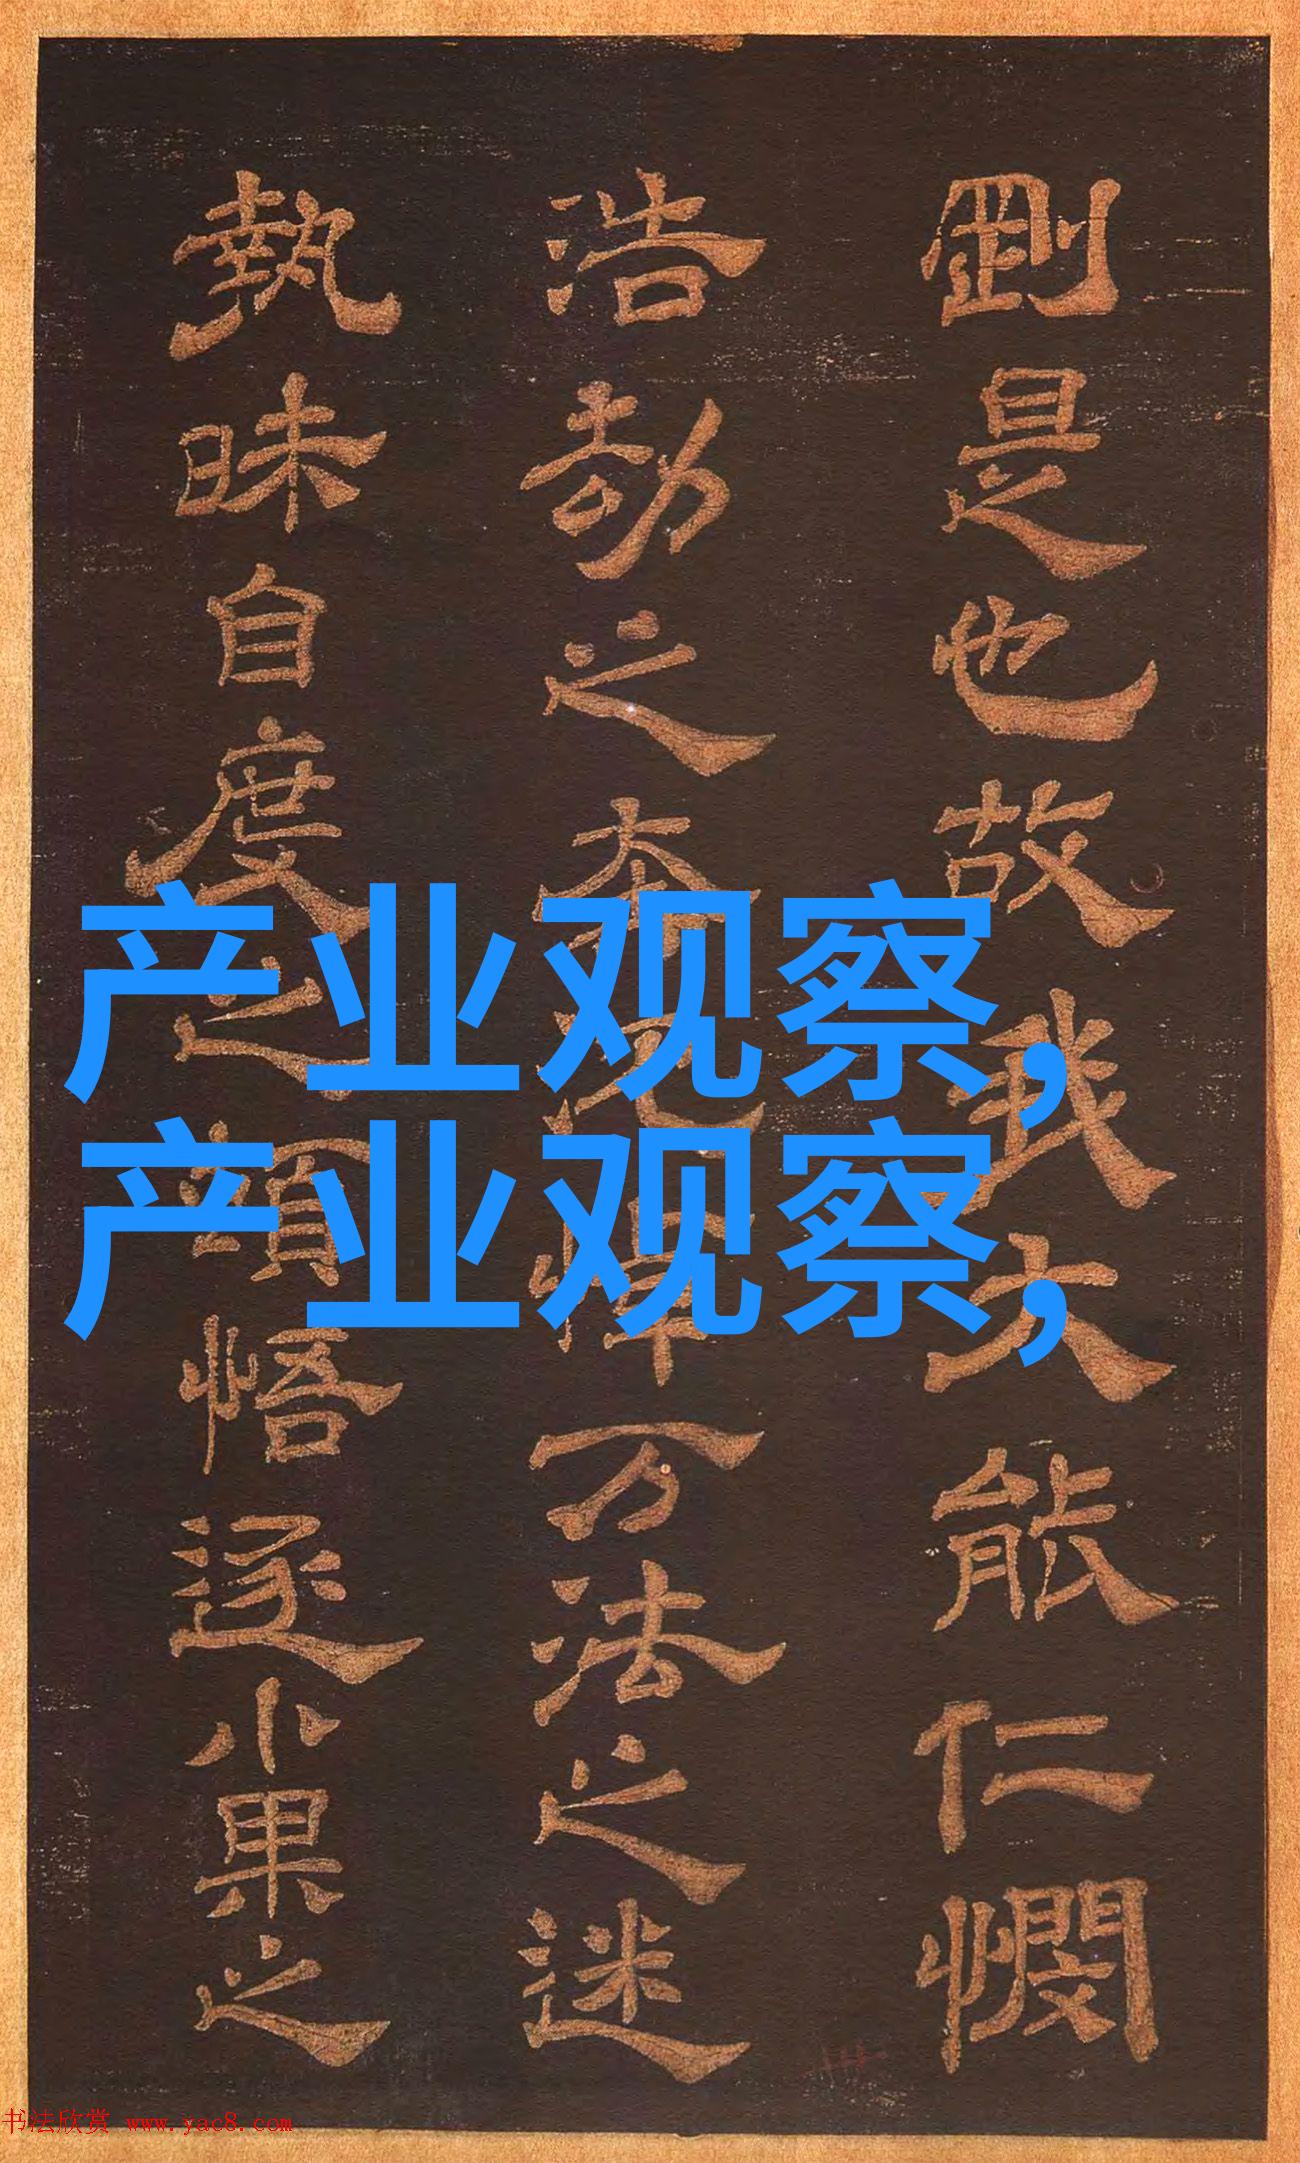 剛是也故我大能仁憫
浩劫之悼万法之迷
執昧自度之頓悟遂小果之
产业观察,
产业观察,
书法欣赏 www.yac8.com